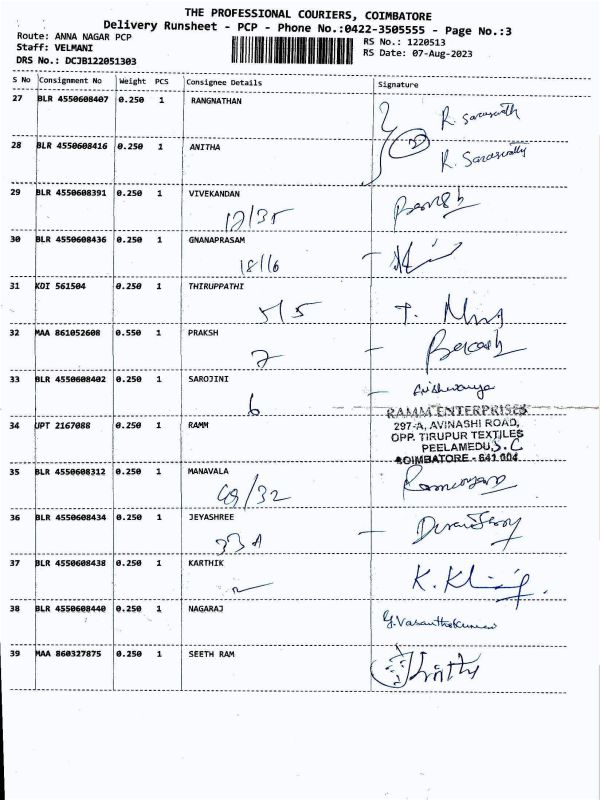 THE PROFESSIONAL COURIERS, COIMBATORE
Delivery Runsheet - PCP - Phone No.:0422-3505555 - Page No.:3
Route: ANNA NAGAR PCP
RS No.: 1220513
Staff: VELMANI
RS Date: 07-Aug-2023
DRS No.: DCJB122051303
S No Consignment No Weight PCS Consignee Details Signature
27 BLR 4550608407 0.250 1 RANGNATHAN
R. Saraswath
28 BLR 4550608416 0.250 1 ANITHA
R. Saraswathy
29 BLR 4550608391 0.250 1 VIVEKANDAN
12/35
30 BLR 4550608436 0.250 1 GNANAPRASAM
18/16
31 KDI 561504 0.250 1 THIRUPPATHI
5/5
32 MAA 861052608 0.550 1 PRAKSH
2
33 BLR 4550608402 0.250 1 SAROJINI
6
RAMM ENTERPRISES
34 JPT 2167088 0.250 1 RAMM
297-A, AVINASHI ROAD,
OPP. TIRUPUR TEXTILES
PEELAMEDU, S.C
COIMBATORE - 641 004
35 BLR 4550608312 0.250 1 MANAVALA
49/32
36 BLR 4550608434 0.250 1 JEYASHREE
33A
37 BLR 4550608438 0.250 1 KARTHIK
38 BLR 4550608440 0.250 1 NAGARAJ
G. Vasanthakumar
39 MAA 860327875 0.250 1 SEETH RAM